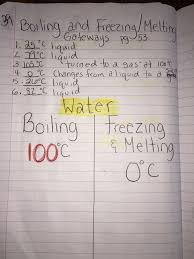 Boiling and Freezing/Melting
Gateways pg. 53
1. 25°C liquid
2. 79°C liquid
3. 100°C turned to a gas at 100°C
4. 0°C Changes from a liquid to a
5. 20°C liquid
6. 32°C liquid
Water
Boiling
100°C
Freezing
& Melting
0°C